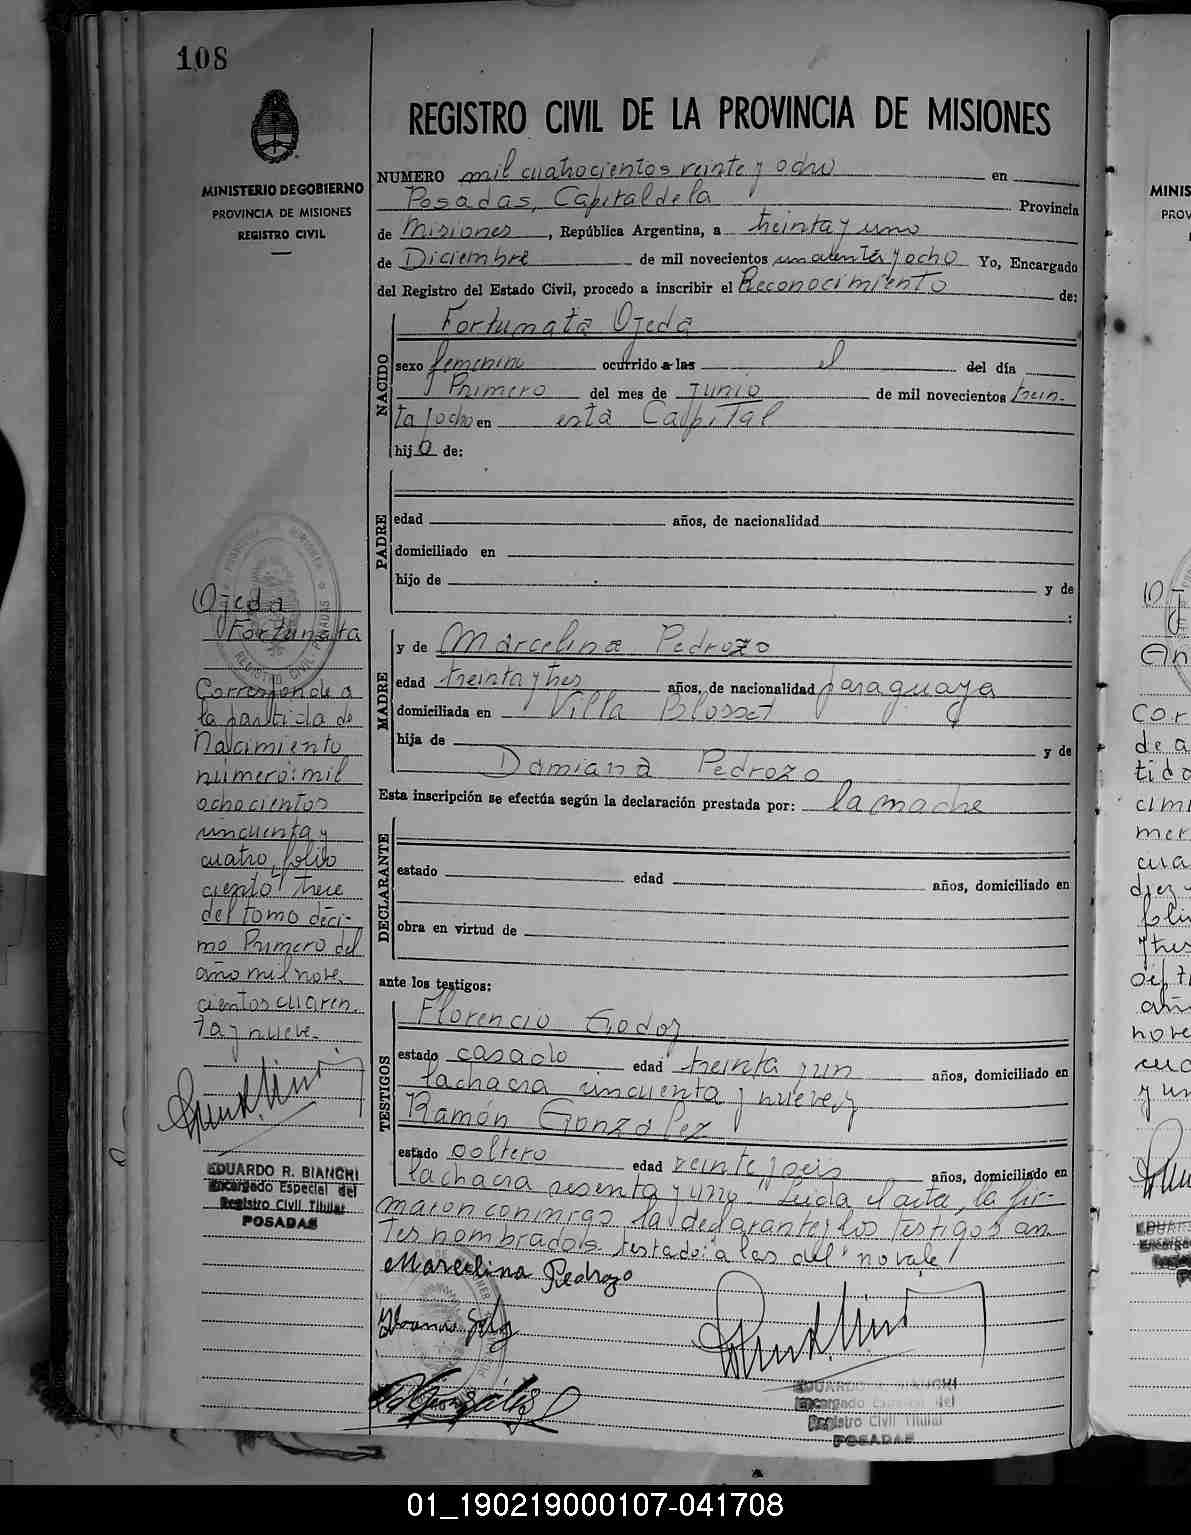 108
MINISTERIO DE GOBIERNO
PROVINCIA DE MISIONES
REGISTRO CIVIL
REGISTRO CIVIL DE LA PROVINCIA DE MISIONES
NUMERO mil cuatrocientos veinte y ocho en
Posadas, Capital de la Provincia
de Misiones, República Argentina, a treinta y uno
de Diciembre de mil novecientos cincuenta y ocho Yo, Encargado
del Registro del Estado Civil, procedo a inscribir el Reconocimiento de:
NACIDO
Fortunata Ojeda
sexo femenino ocurrido a las el del día
Primero del mes de Junio de mil novecientos trein-
ta y ocho en esta Capital
hijo de:
PADRE
edad años, de nacionalidad
domiciliado en
hijo de y de
:
MADRE
y de Marcelina Pedrozo
edad treinta y tres años, de nacionalidad paraguaya
domiciliada en Villa Blosset
hija de y de
Damiana Pedrozo
Esta inscripción se efectúa según la declaración prestada por: la madre
DECLARANTE
estado edad años, domiciliado en
obra en virtud de
ante los testigos:
TESTIGOS
Florencio Godoy
estado casado edad treinta y un años, domiciliado en
la chacra cincuenta y nueve y
Ramón González
estado soltero edad veinte y seis años, domiciliado en
la chacra sesenta y uno Leida el acta, la fir-
maron conmigo la declarante y los testigos an
tes nombrados. testado: a las del no vale
Marcelina Pedrozo
EDUARDO R. BIANCHI
Encargado Especial del
Registro Civil Titular
POSADAS
Ojeda
Fortunata
Corresponde a
la partida de
Nacimiento
número: mil
ochocientos
cincuenta y
cuatro, folio
ciento trece
del tomo déci-
mo Primero del
año mil nove.
cientos cuaren
ta y nueve.
EDUARDO R. BIANCHI
Encargado Especial del
Registro Civil Titular
POSADAS
01_190219000107-041708